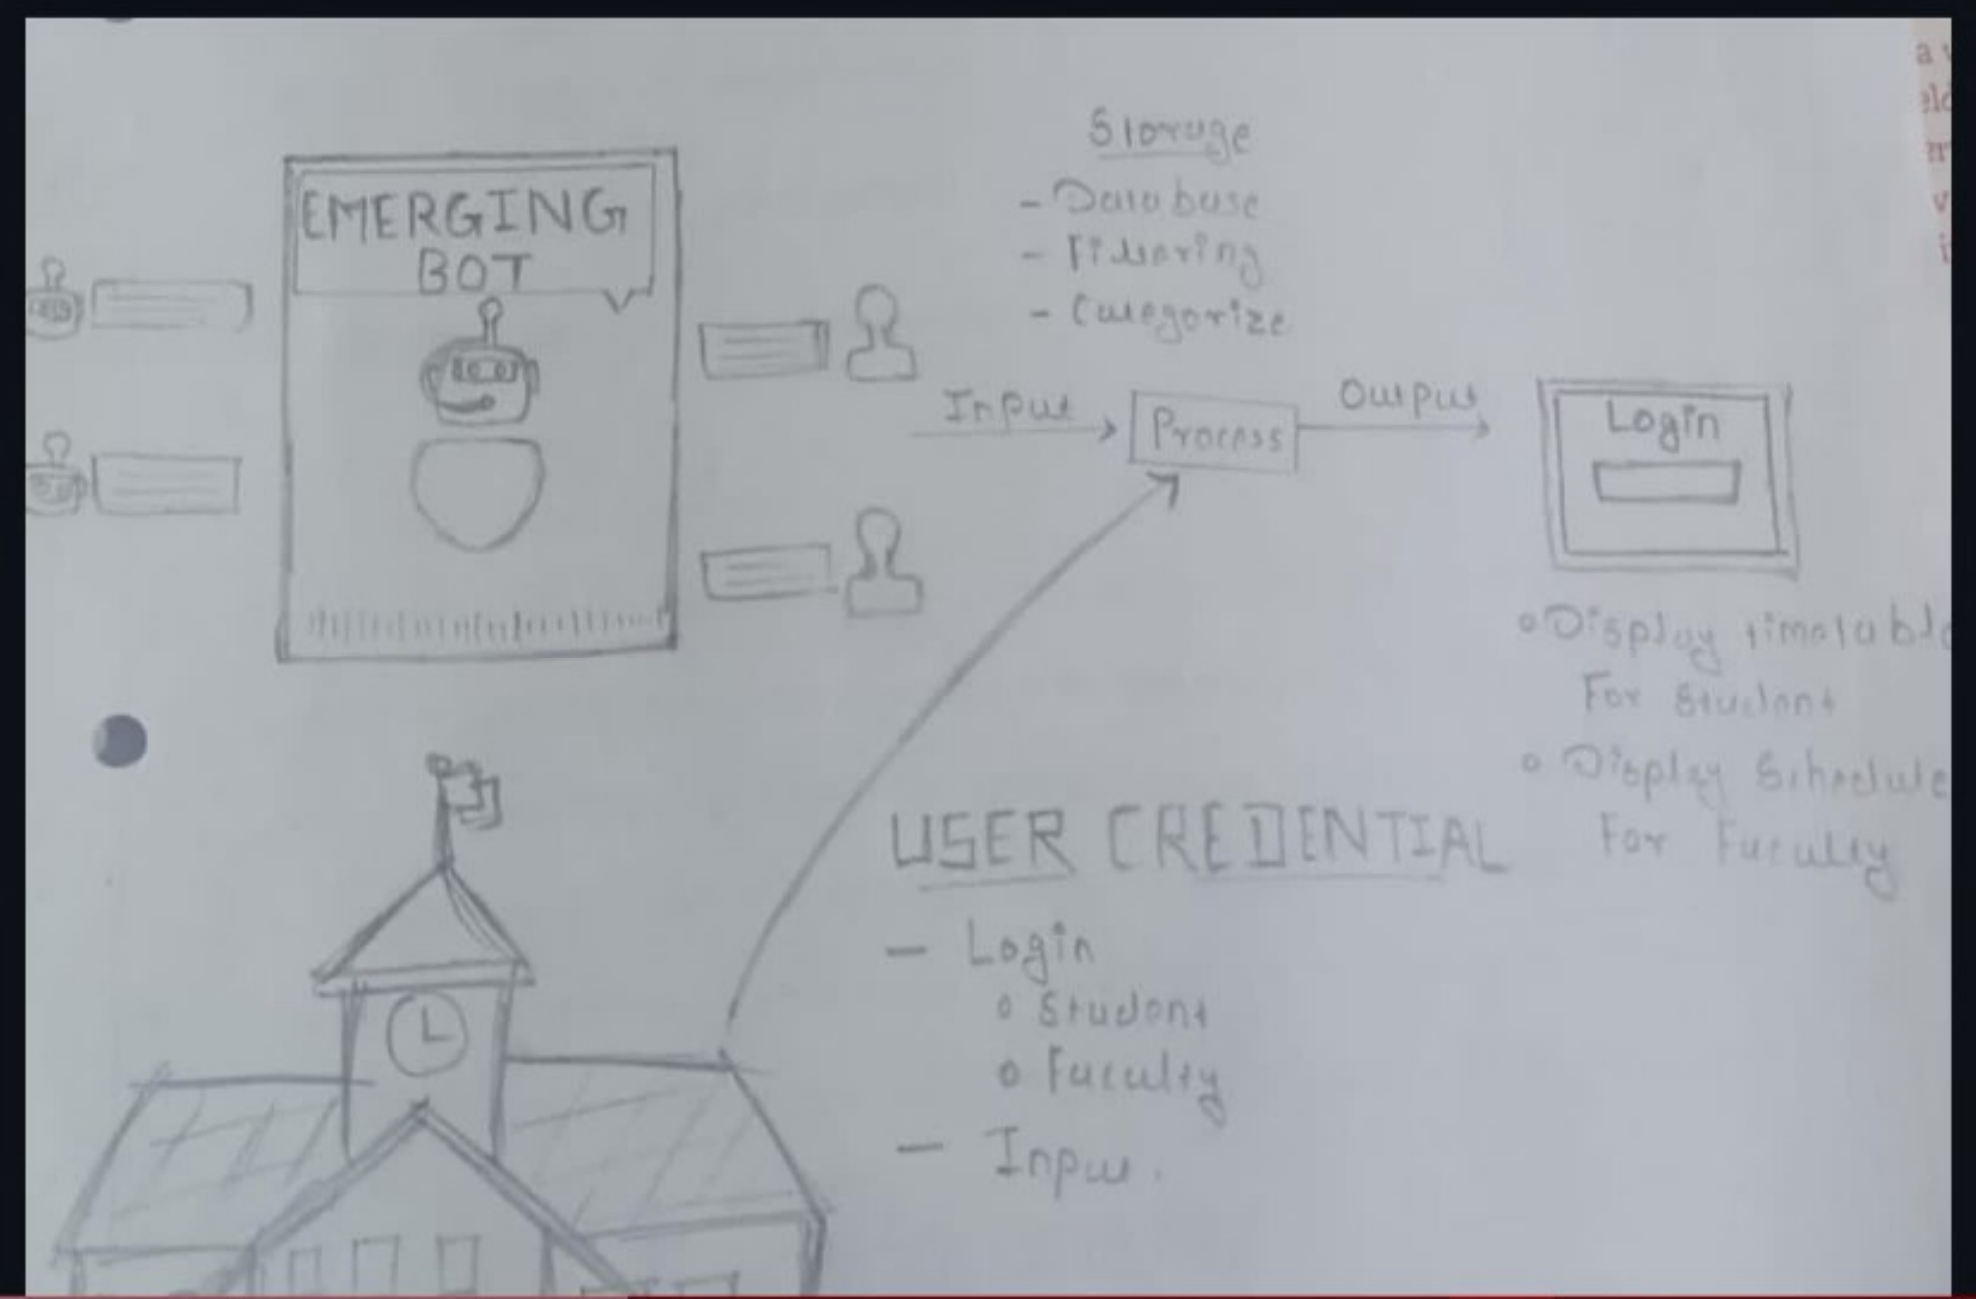 EMERGING
BOT
Storage
- Database
- Filtering
- Categorize
Input
Process
Output
Login
o Display timetable
For Student
o Display Schedule
For Faculty
USER CREDENTIAL
- Login
o Student
o Faculty
- Input.